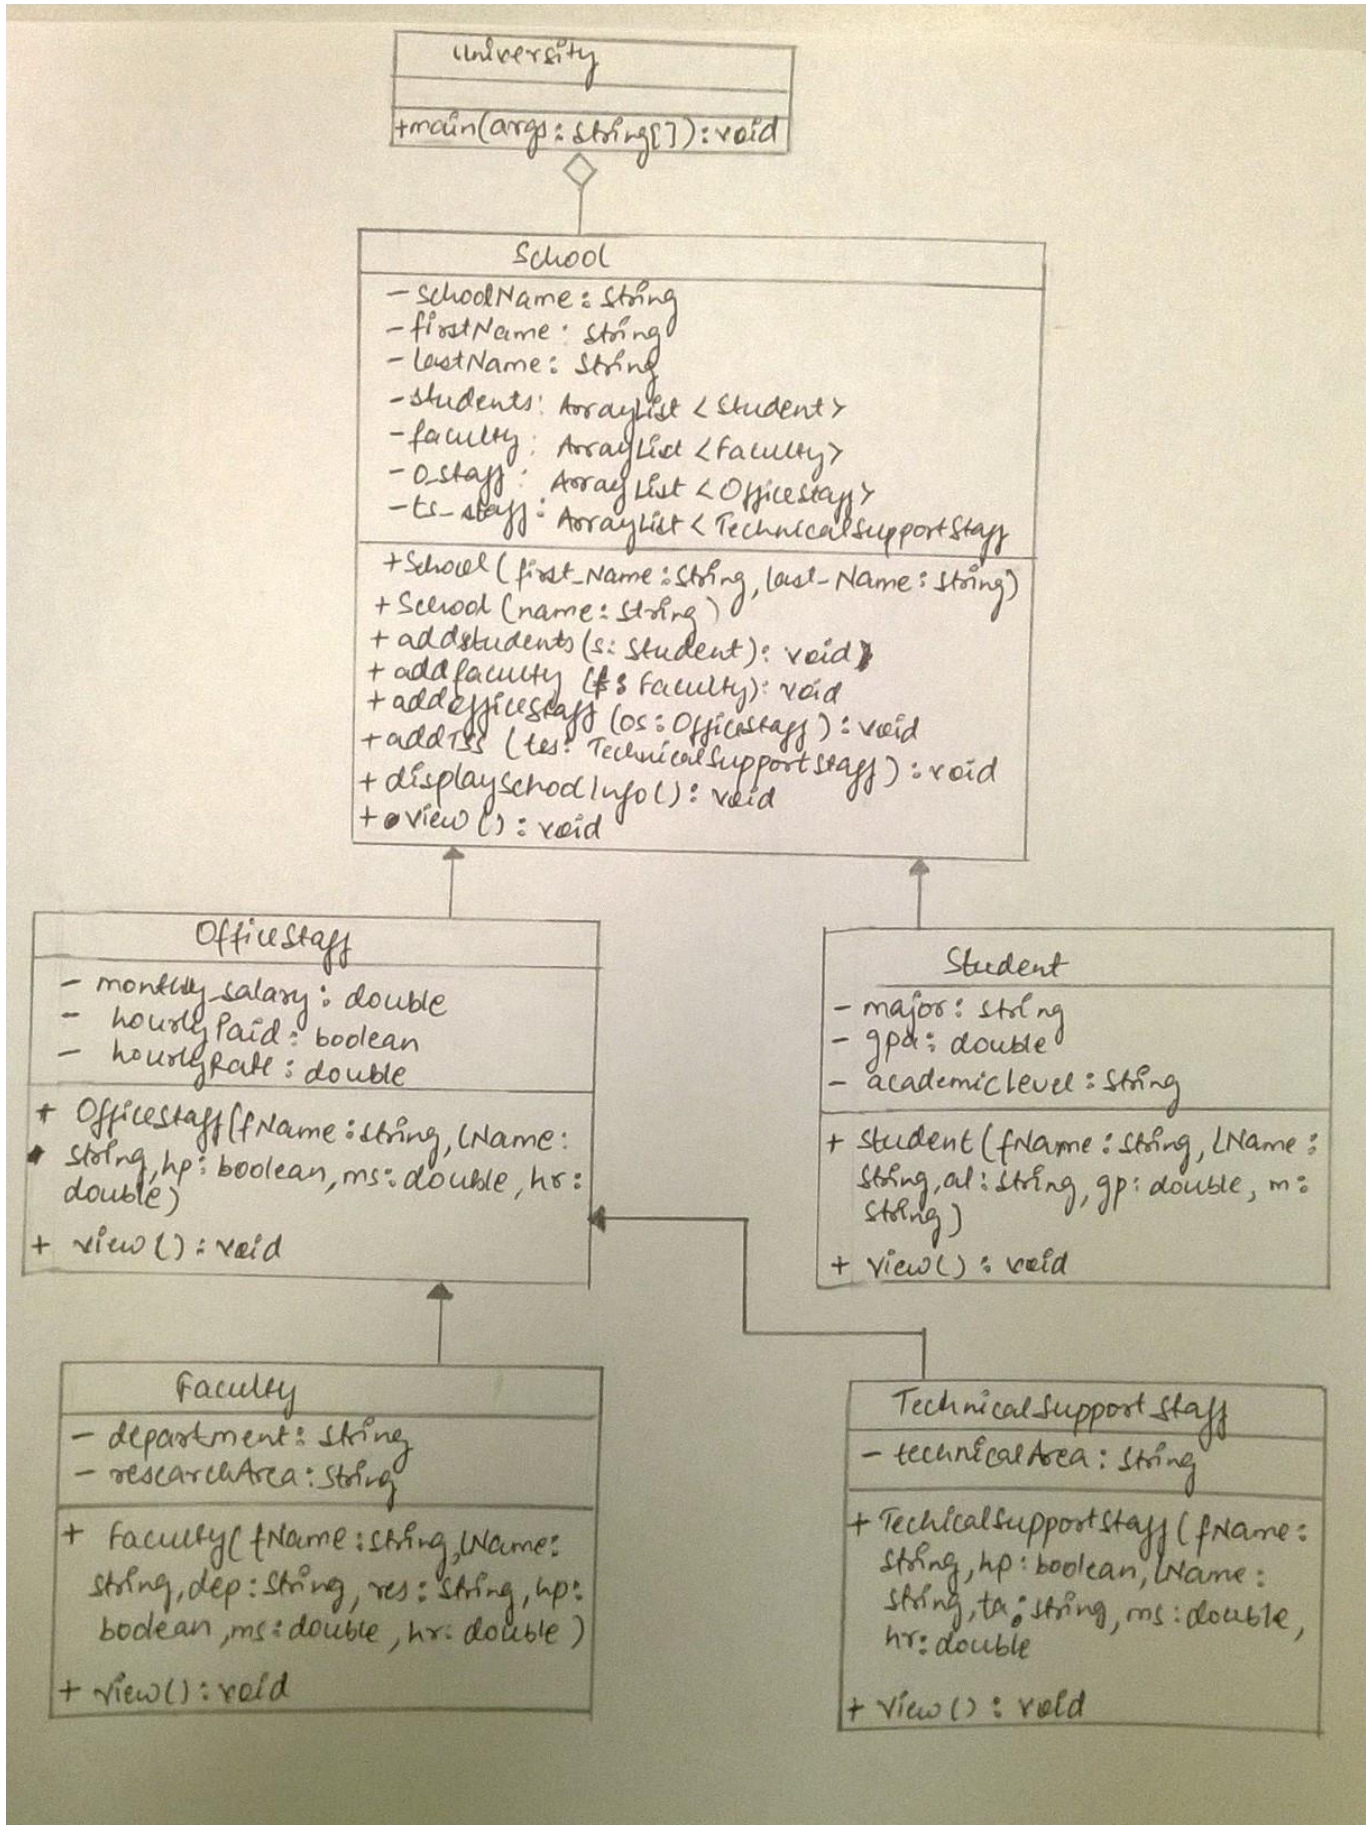 University
+main(args: String[]): void
School
- schoolName: String
- firstName: String
- lastName: String
- students: ArrayList <Student>
- faculty: ArrayList <Faculty>
- o_staff: ArrayList <OfficeStaff>
- ts_staff: ArrayList < TechnicalSupportStaff
+ School (first_Name: String, last_Name: String)
+ School (name: String)
+ addstudents (s: Student): void
+ addfaculty (f: Faculty): void
+ addofficestaff (os: OfficeStaff): void
+ addTSS (tss: TechnicalSupportStaff): void
+ displaySchoolInfo(): void
+ view(): void
OfficeStaff
- monthly_salary: double
- hourlyPaid: boolean
- hourlyRate: double
+ OfficeStaff(fName: String, lName:
String, hp: boolean, ms: double, hr:
double)
+ view(): void
Student
- major: String
- gpa: double
- academiclevel: String
+ Student(fName: String, lName:
String, al: String, gp: double, m:
String)
+ view(): void
Faculty
- department: String
- researchArea: String
+ Faculty(fName: String, lName:
String, dep: String, res: String, hp:
boolean, ms: double, hr: double)
+ view(): void
TechnicalSupportStaff
- technicalArea: String
+ TechicalSupportStaff(fName:
String, hp: boolean, lName:
String, ta: String, ms: double,
hr: double
+ view(): void